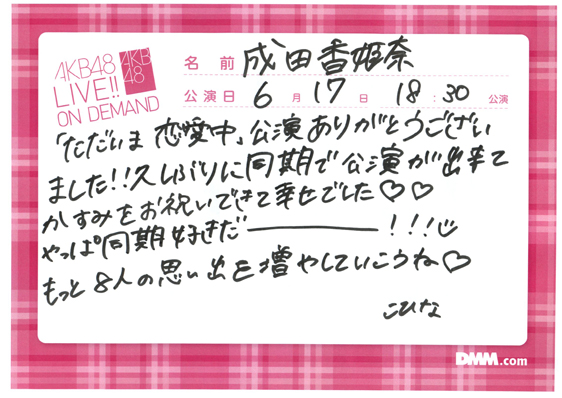 AKB48
LIVE!!
ON DEMAND
AKB
48
名前 成田香姫奈
公演日 6月17日 18:30 公演
「ただいま 恋愛中」公演ありがとうござい
ました!!久しぶりに同期で公演が出来て
かすみをお祝いできて幸せでした♡♡
やっぱ同期好きだー!!!
もっと8人の思い出を増やしていこうね♡
こひな
DMM.com